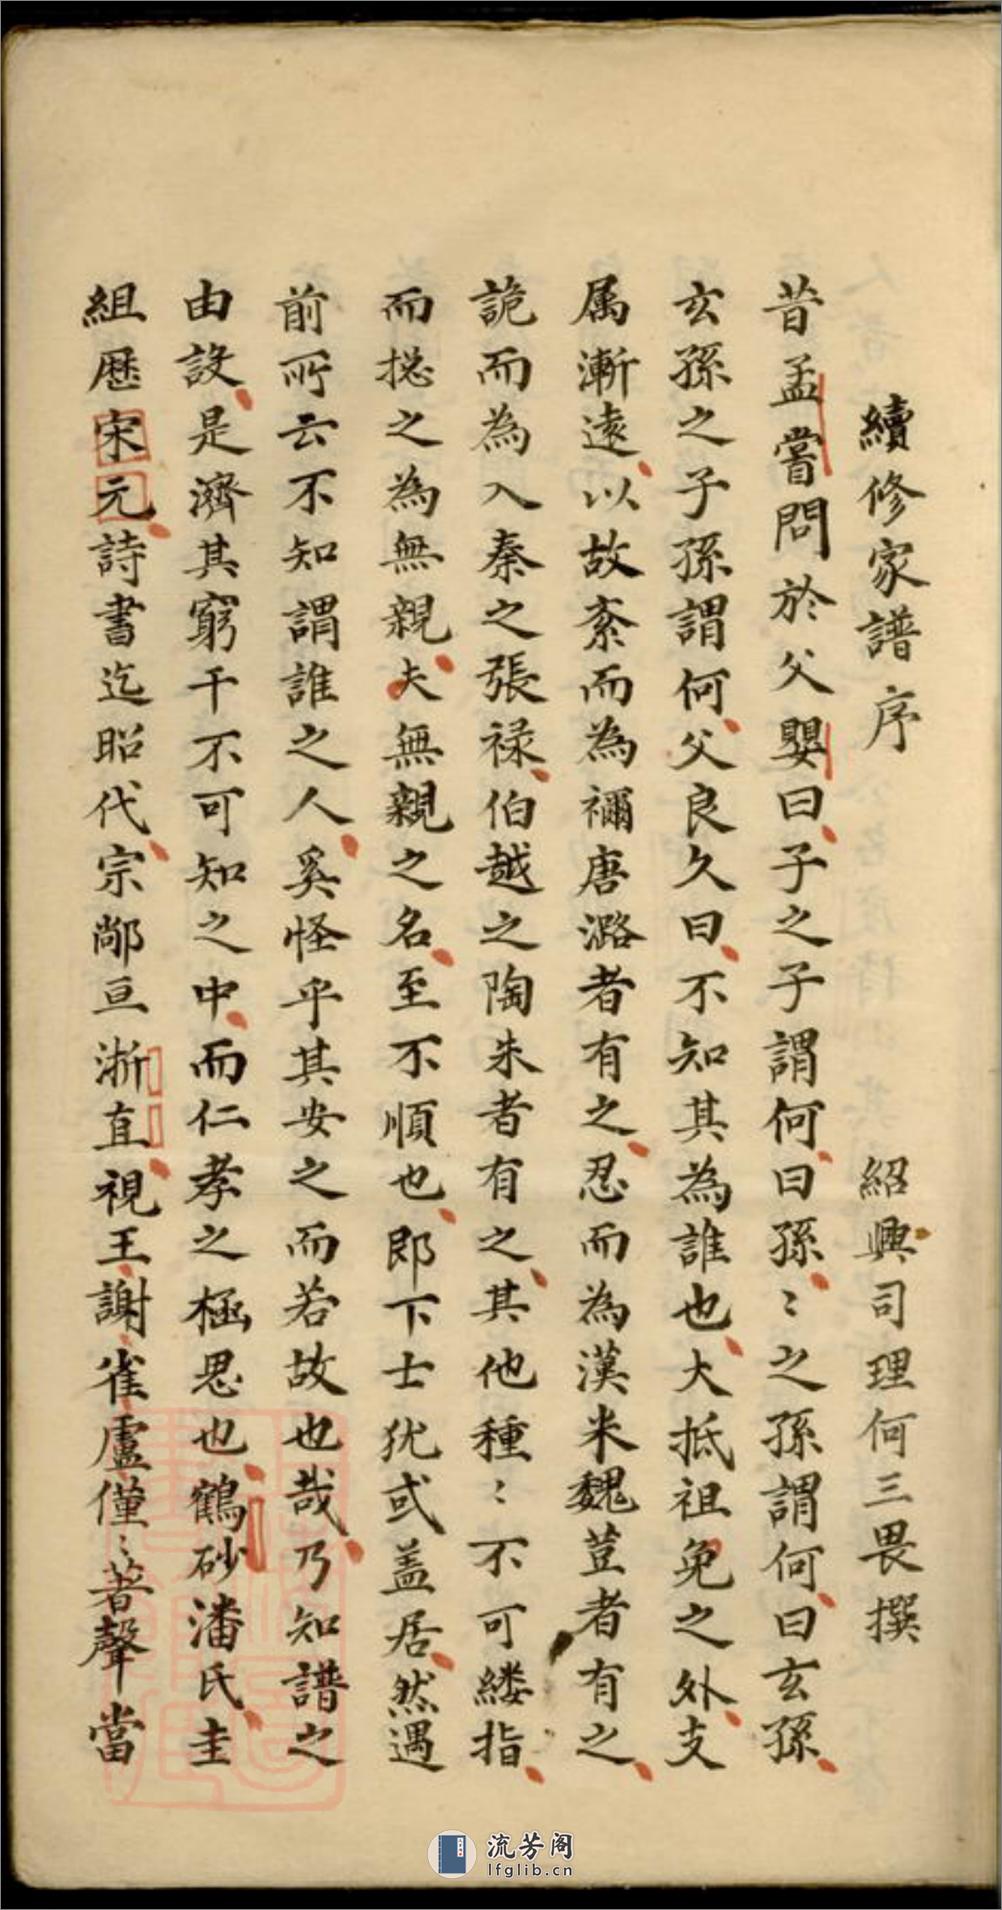 續修家譜序
紹興司理何三畏撰
昔孟嘗問於父嬰曰子之子謂何曰孫〻之孫謂何曰玄孫
玄孫之子孫謂何父良久曰不知其為誰也大抵祖免之外支
属漸遠以故紊而為禰唐潞者有之忍而為漢米魏荳者有之
詭而為入秦之張禄伯越之陶朱者有之其他種〻不可縷指
而捴之為無親夫無親之名至不順也即下士犹或盖居然遇
前所云不知謂誰之人奚怪乎其安之而若故也哉乃知譜之
由設是濟其窮干不可知之中而仁孝之極思也鶴砂潘氏圭
組歷宋元詩書迄昭代宗鄗亘浙直視王謝雀盧僅〻著聲當
流芳阁
lfglib.cn